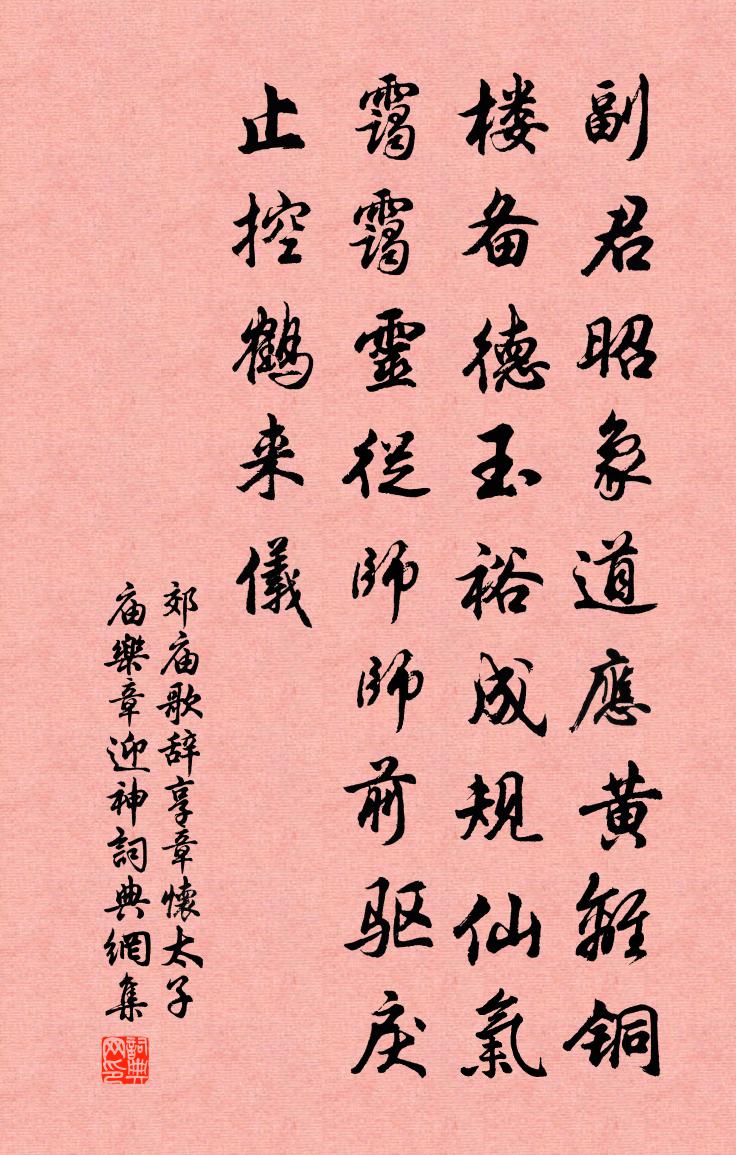 副君昭象道應黄離铜
楼备德玉裕成規仙氣
靄靄靈從師師前驱戾
止控鶴来儀
郊庙歌辞享章懷太子
庙樂章迎神詞典網集
詞典网印